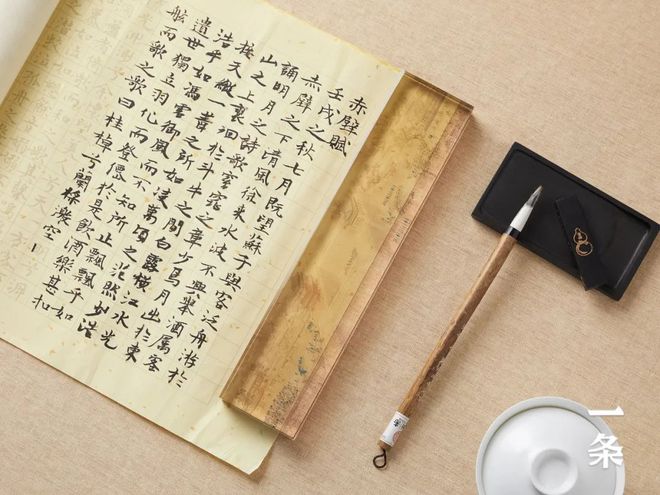 赤壁賦
壬戌之秋七月既望蘇子與客泛舟游於
赤壁之下清風徐來水波不興舉酒屬客
誦明月之詩歌窈窕之章少焉月出於東
山之上裵徊於斗牛之間白露橫江水光
接天縱一葦之所如凌萬頃之茫然浩
浩乎如馮虛御風而不知所止飄飄乎如
遺世獨立羽化而登僊於是飲酒樂甚扣
舷而歌之歌曰桂棹兮蘭槳擊空
一条